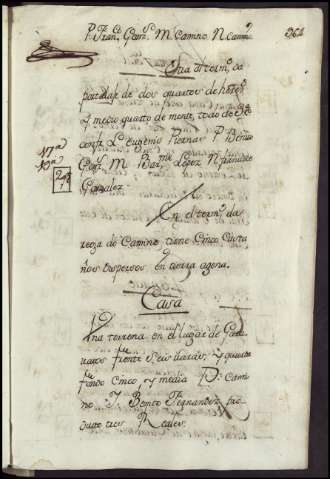 P. Fran.co Gonz.s M. Camino N Camn.o 364
Otra al term.o de
partidas de dos quartos de
y medio quarto de monte, todo de S.ta
conf.a L. Eugenio Bernar P. Benito
Gonz. M Bar.me Lopez N. franzisco
Gonzalez.
17a
10a
2
1
En el term.o da
rega do Camino tiene Cinco Casta
ños dispersos en tierra agena.
Casa
Una terrena en el lugar de
frente Seis baras, y quarta
fondo Cinco, y media D. Cami
no Y. Benito Fernandez pro
duce tres Reales.